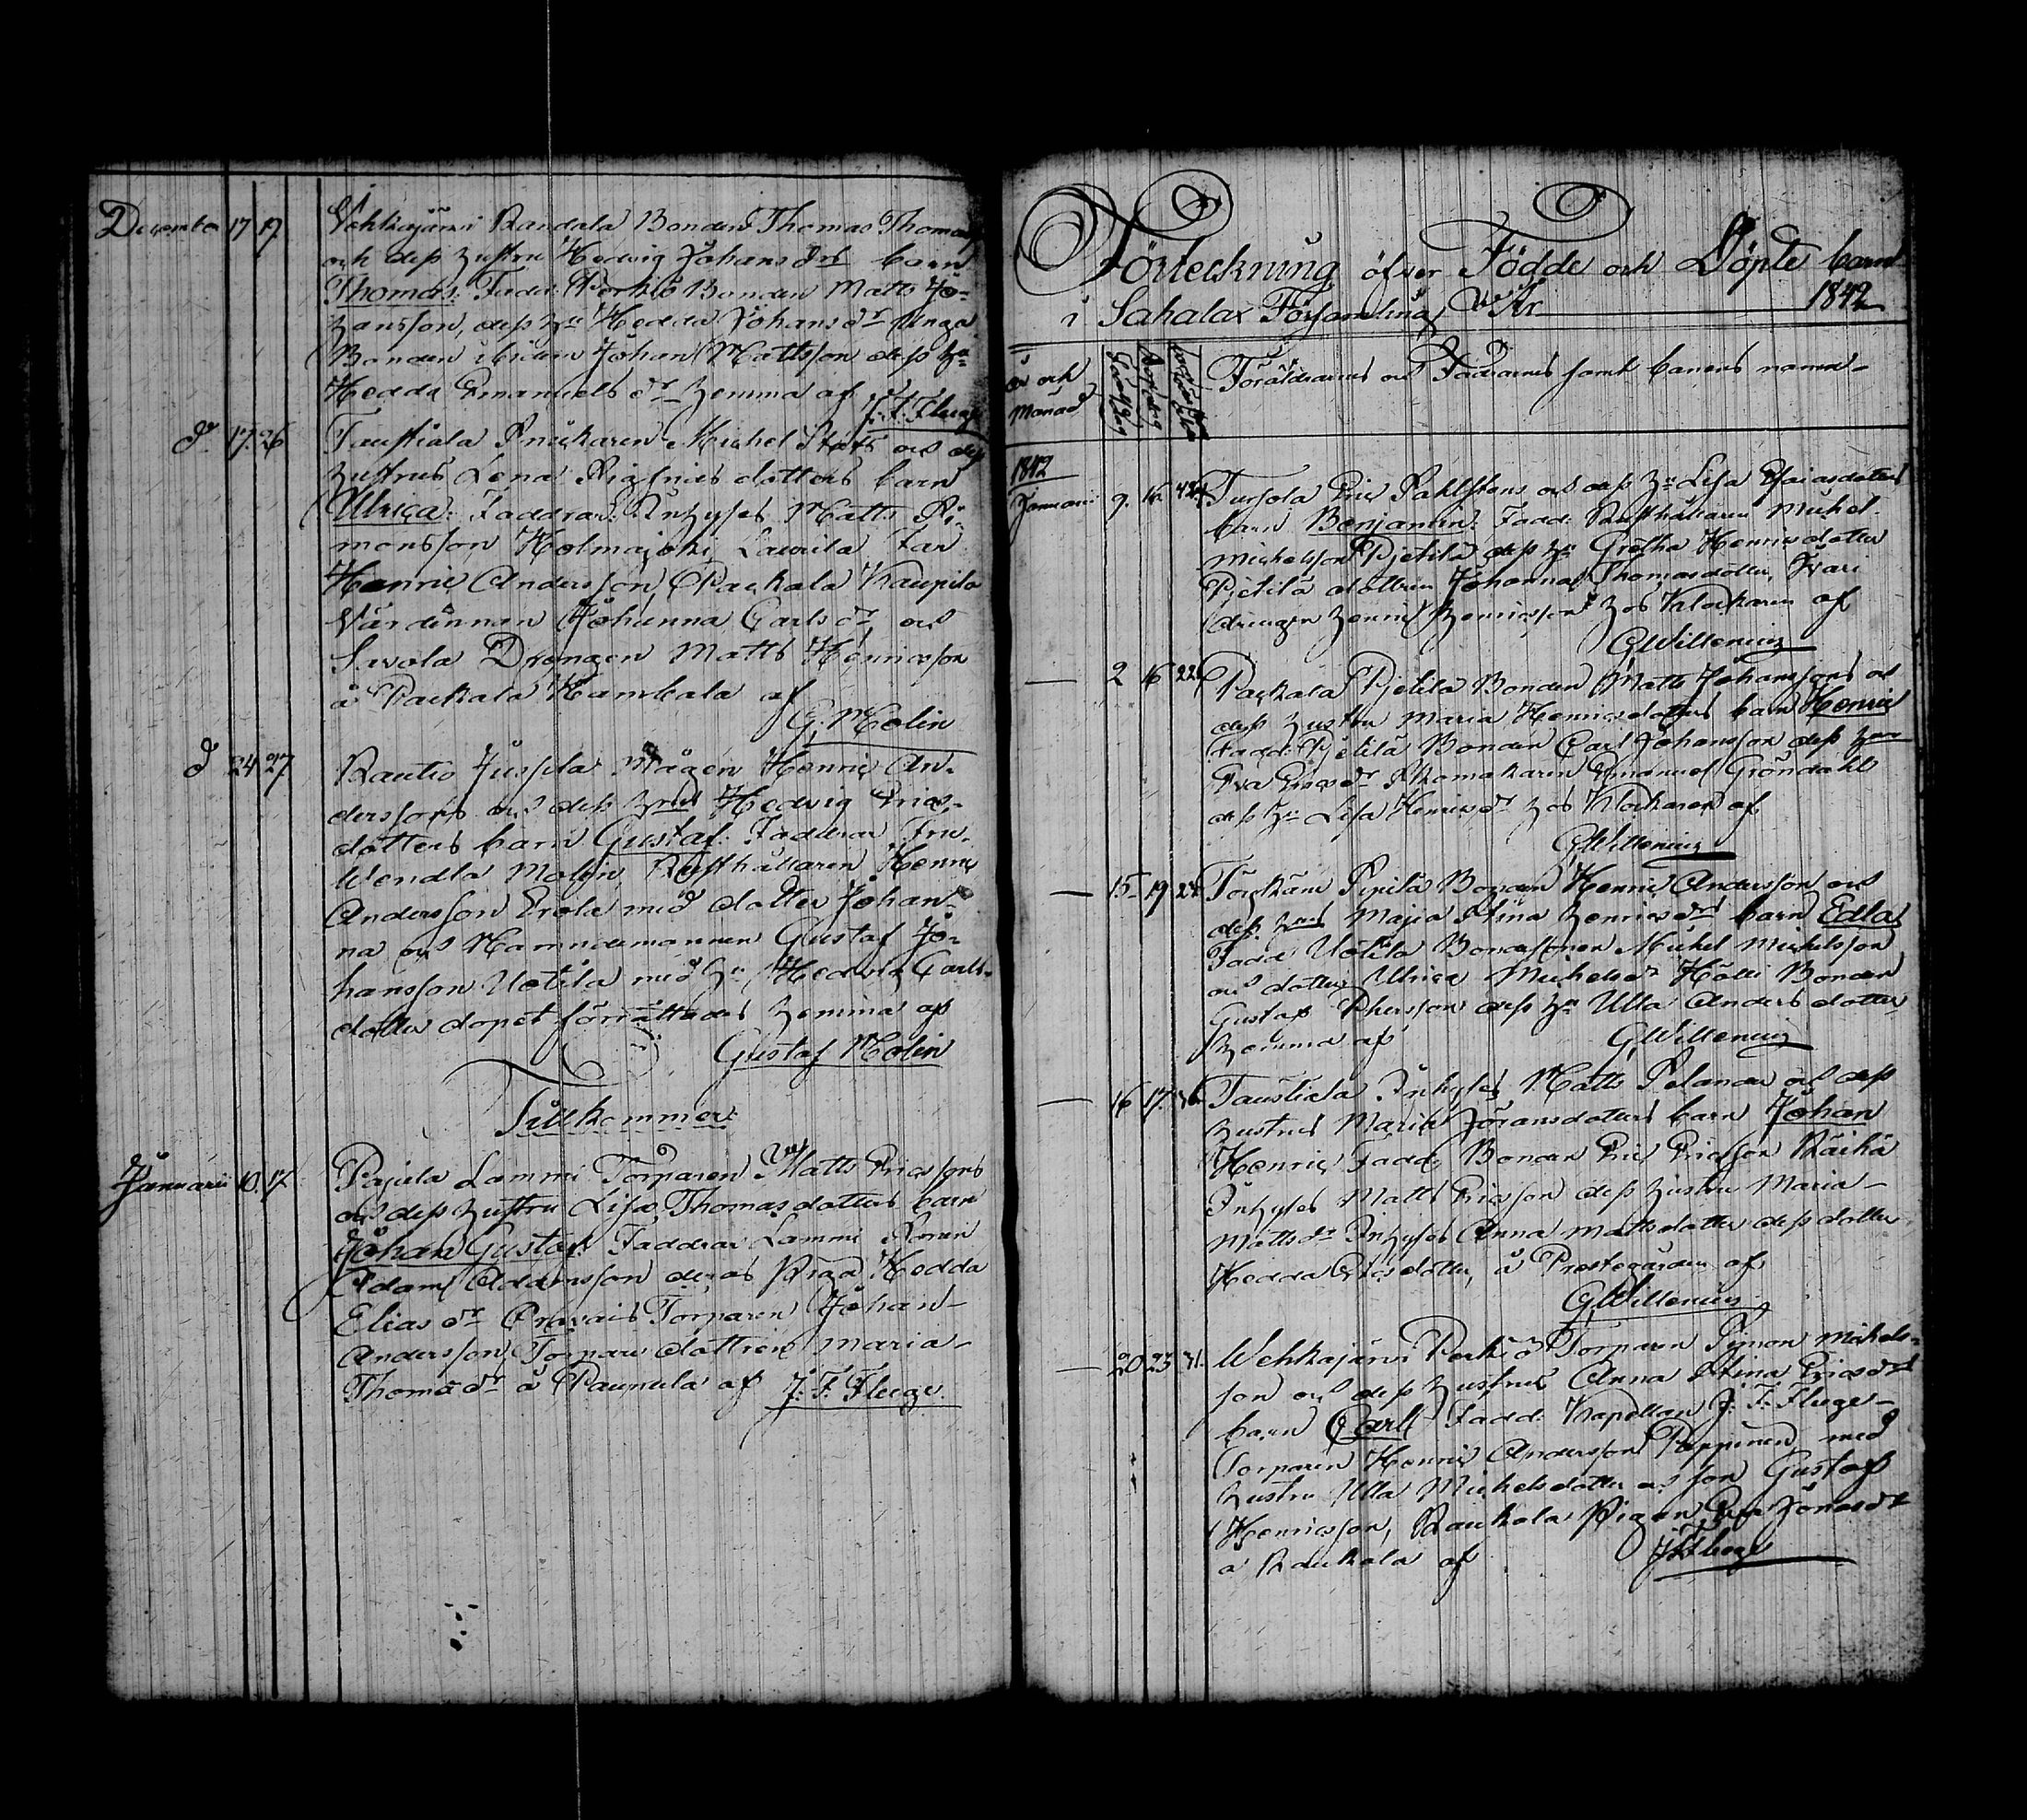 December 17 19 Vehkajärvi Randala Bonden Thomas Thomass
och dess hustru Hedvig Johansdrs barn
Thomas: Fadd: Perkiö Bonden Matts Jo-
hansson, dess hu Hedda Johansdr Unga
Bonden ibidem Johan Mattsson dess hu
Hedda Emanuelsdr hemma af J. F. Fluge
d. 17. 26 Taustiala Snickaren Michel Stots och dess
hustrus Lena Sigfrieds dotters barn
Ulrica: Faddrar: Inhyses Matts Si-
monsson Kolmajoki Laurila Far
Henric Andersson, Packala Kaupila
Värdinnan Johanna Carlsdr och
Savola Drengen Matts Henricsson
å Packala Humbala af
G. Molin
d 24 27 Rautio Jussila Mågen Henric An-
derssons och dess hrus Hedvig Erics-
dotters barn Gustaf: Faddrar Fru
Wendla Molin, Rusthållaren Henric
Andersson Erola med dotter Johan-
na och Nämndemannen Gustaf Jo-
hansson Uotila med hu Hedvig Carls-
dotter dopet förrättades hemma af
Gustaf Molin
Tillkommer:
Januarii 10. 17. Pajula Lammi Torparen Matts Ericssons
och dess hustru Lisa Thomasdotters barn
Johan Gustaf: Faddrar Lammi Sonen
Adam Adamsson deras Piga Hedda
Eliasdr Torparen Johan
Andersson, Torpare dottren Maria
Thomasdr å Paunula af J. F. Fluge
Förteckning öfver Födde och Döpte barn
i Sahalax Församling År 1842
År och
Månad
Född dag
Döpt dag
Föräldrarnes och Faddrarnes samt barnens namn
1842
Januarii 9. 16. Tursola Eric Pahlstens och dess hu Lisa Esaiasdotters
barn Benjamin: Fadd: Rusthållaren Michel
Michelsson Pjetilä dess hu Gretha Henricsdotter
Pjetilä dottren Johanna Thomasdotter,
drengen Henric Henricsson hos Klockaren af
G Willenius
— 2 16 Packala Pjetilä Bonden Matts Johanssons och
dess hustru Maria Henricsdotters barn Henric
Fadd: Pjetilä Bonden Carl Johansson dess hru
Eva Ericsdr Skomakaren Emanuel Gröndahl
dess hu Lisa Henricsdr hos Klockaren af
G Willenius
— 15 19 Bonden Henric Andersson och
dess hrus Maja Stina Henricsdrs barn Edla
Fadd: Uotila Bondesonen Michel Michelsson
och dotter Ulrica Michelsdr Hölli Bonden
Gustaf Phersson dess hu Ulla Anders dotter
hemma af G Willenius
— 16 17 Taustiala Inhyses Matts Selander och dess
hustrus Maria Göransdotters barn Johan
Henric, Fadd: Bonden Eric Ericsson Räikä
Inhyses Matts Ericsson dess hustru Maria
Mattsdr Inhyses Anna Mattsdotter dess dotter
Hedda Ericsdotter, å Prestegården af
G Willenius
— 20 23 31. Wehkajärvi Perkiö Torparen Simon Michels-
son och dess hustrus Anna Stina Ericsdrs
barn Carl Fadd: Kapellan J. F. Fluge
Torparen Henric Andersson Pappinen med
hustru Ulla Michelsdotter och son Gustaf
Henricsson, Raukala Pigan Eva Jonasdr
å Raukala af J F Fluge